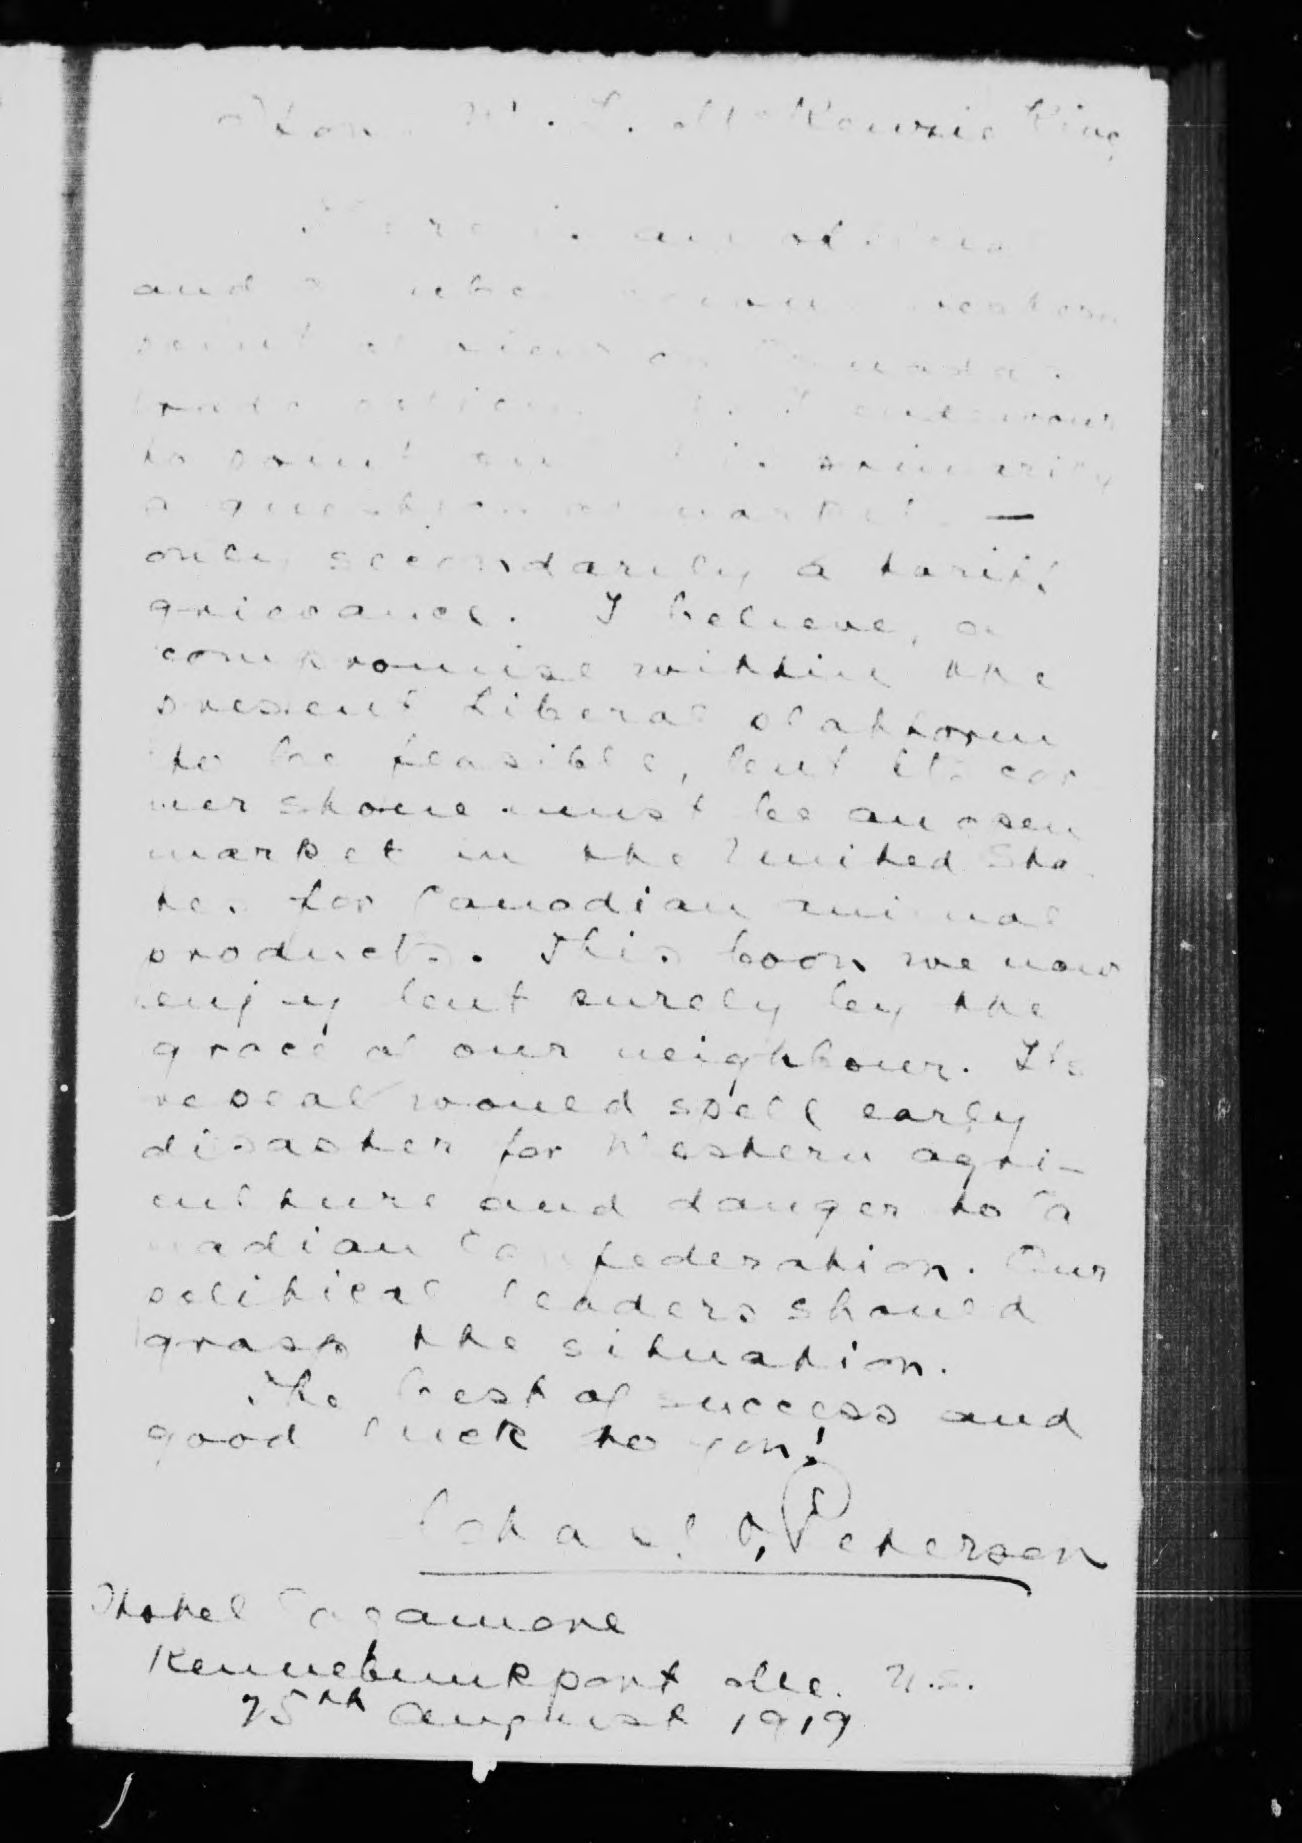 Hon. W. L. McKenzie King
There is an
and
point of view on Canada's
trade I endeavour
to point out primarily
a question of markets —
only secondarily a tariff
grievance. I believe, a
compromise within the
present Liberal platform
to be feasible, but its cor
ner stone must be an open
market in the United Sta
tes for Canadian animal
products. This boon we now
enjoy but purely by the
grace of our neighbour. Its
repeal would spell early
disaster for Western agri-
culture and danger to Ca
nadian Confederation. Our
political leaders should
grasp the situation.
The best of success and
good luck to you!
Petersen
Hotel Sagamore
Kennebunkport Me. U.S.
25th August 1919